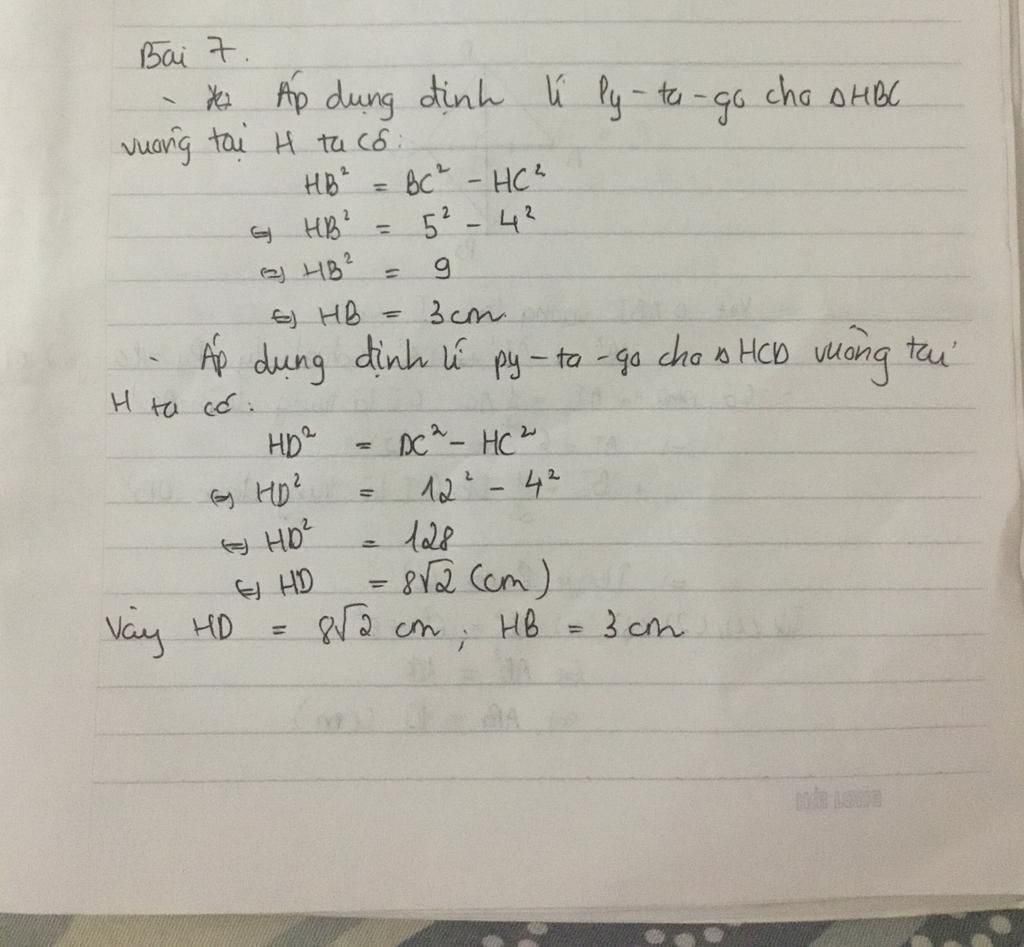 Bài 7.
- Áp dụng định lí Py-ta-go cho ΔHBC
vuông tại H ta có:
HB² = BC² - HC²
⇔ HB² = 5² - 4²
⇔ HB² = 9
⇔ HB = 3cm
- Áp dụng định lí py-ta-go cho ΔHCD vuông tại
H ta có:
HD² = DC² - HC²
⇔ HD² = 12² - 4²
⇔ HD² = 128
⇔ HD = 8√2 (cm)
Vậy HD = 8√2 cm; HB = 3cm